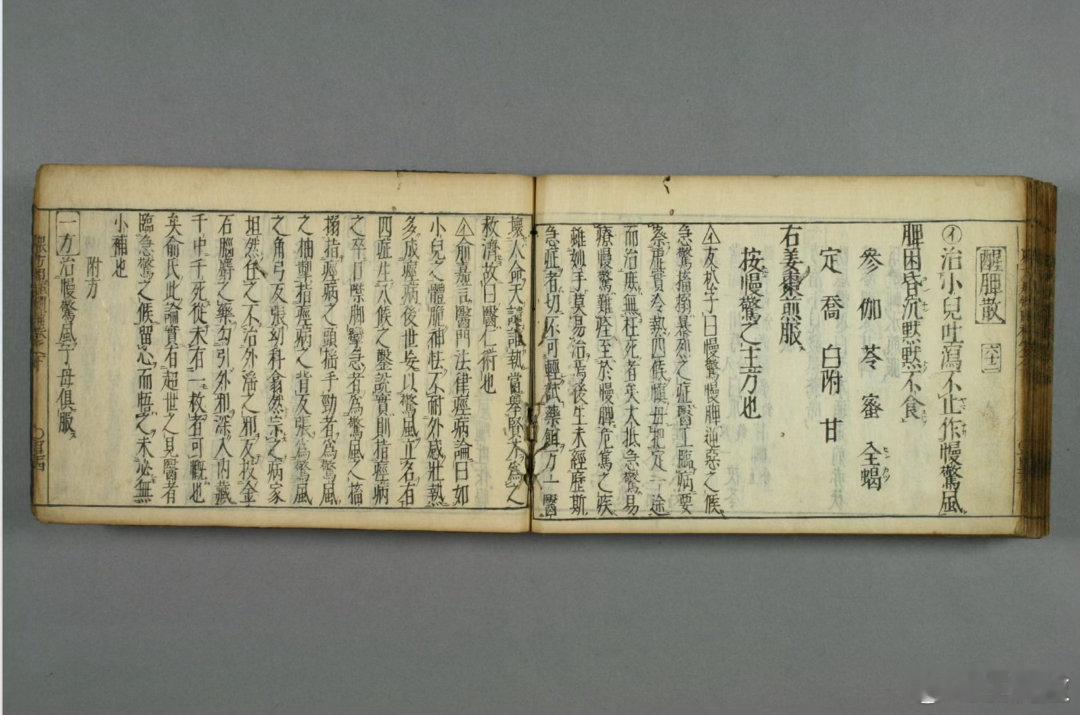 醒脾散 六十二
治小兒吐瀉不止作慢驚風
脾困昏沉默默不食
參 伽 苓 蜜 全蝎
定 喬 白附 甘
右姜棗煎服
按慢驚之主方也
友松子曰慢驚慢脾逆惡之候
急驚搐搦暴烈之症醫士臨病要
察虛實冷熱四候慎毋把定一途
而治庶無枉死者矣大抵急驚易
療慢驚難痊至於慢脾危篤之疾
雖妙手莫易治焉後生未經歷斯
急症者切不可輕試藥餌万一醫
壞人命天譴誰執當舉賢木爲之
救濟故曰醫仁術也
俞嘉言醫門法律痙病論曰如
小兒之體脆神怯不耐外感壯熱
多成痙病後世妄以驚風立名有
四症生八候之鑿說實則指痙病
之卒口噤脚攣急者爲驚風之搐
搦指痙病之頭搖手勁者爲驚風
之抽掣指痙病之背反張爲驚風
之角弓反張幼科翕然宗之病家
坦然任之不治外淫之邪反投金
石腦麝之藥勾引外邪深入內藏
千中千死從未有一救者可慨也
矣俞氏此論實有超世之見醫者
臨急驚之候留心而悟之未必無
小補也
附方
一方治慢驚風子母俱服